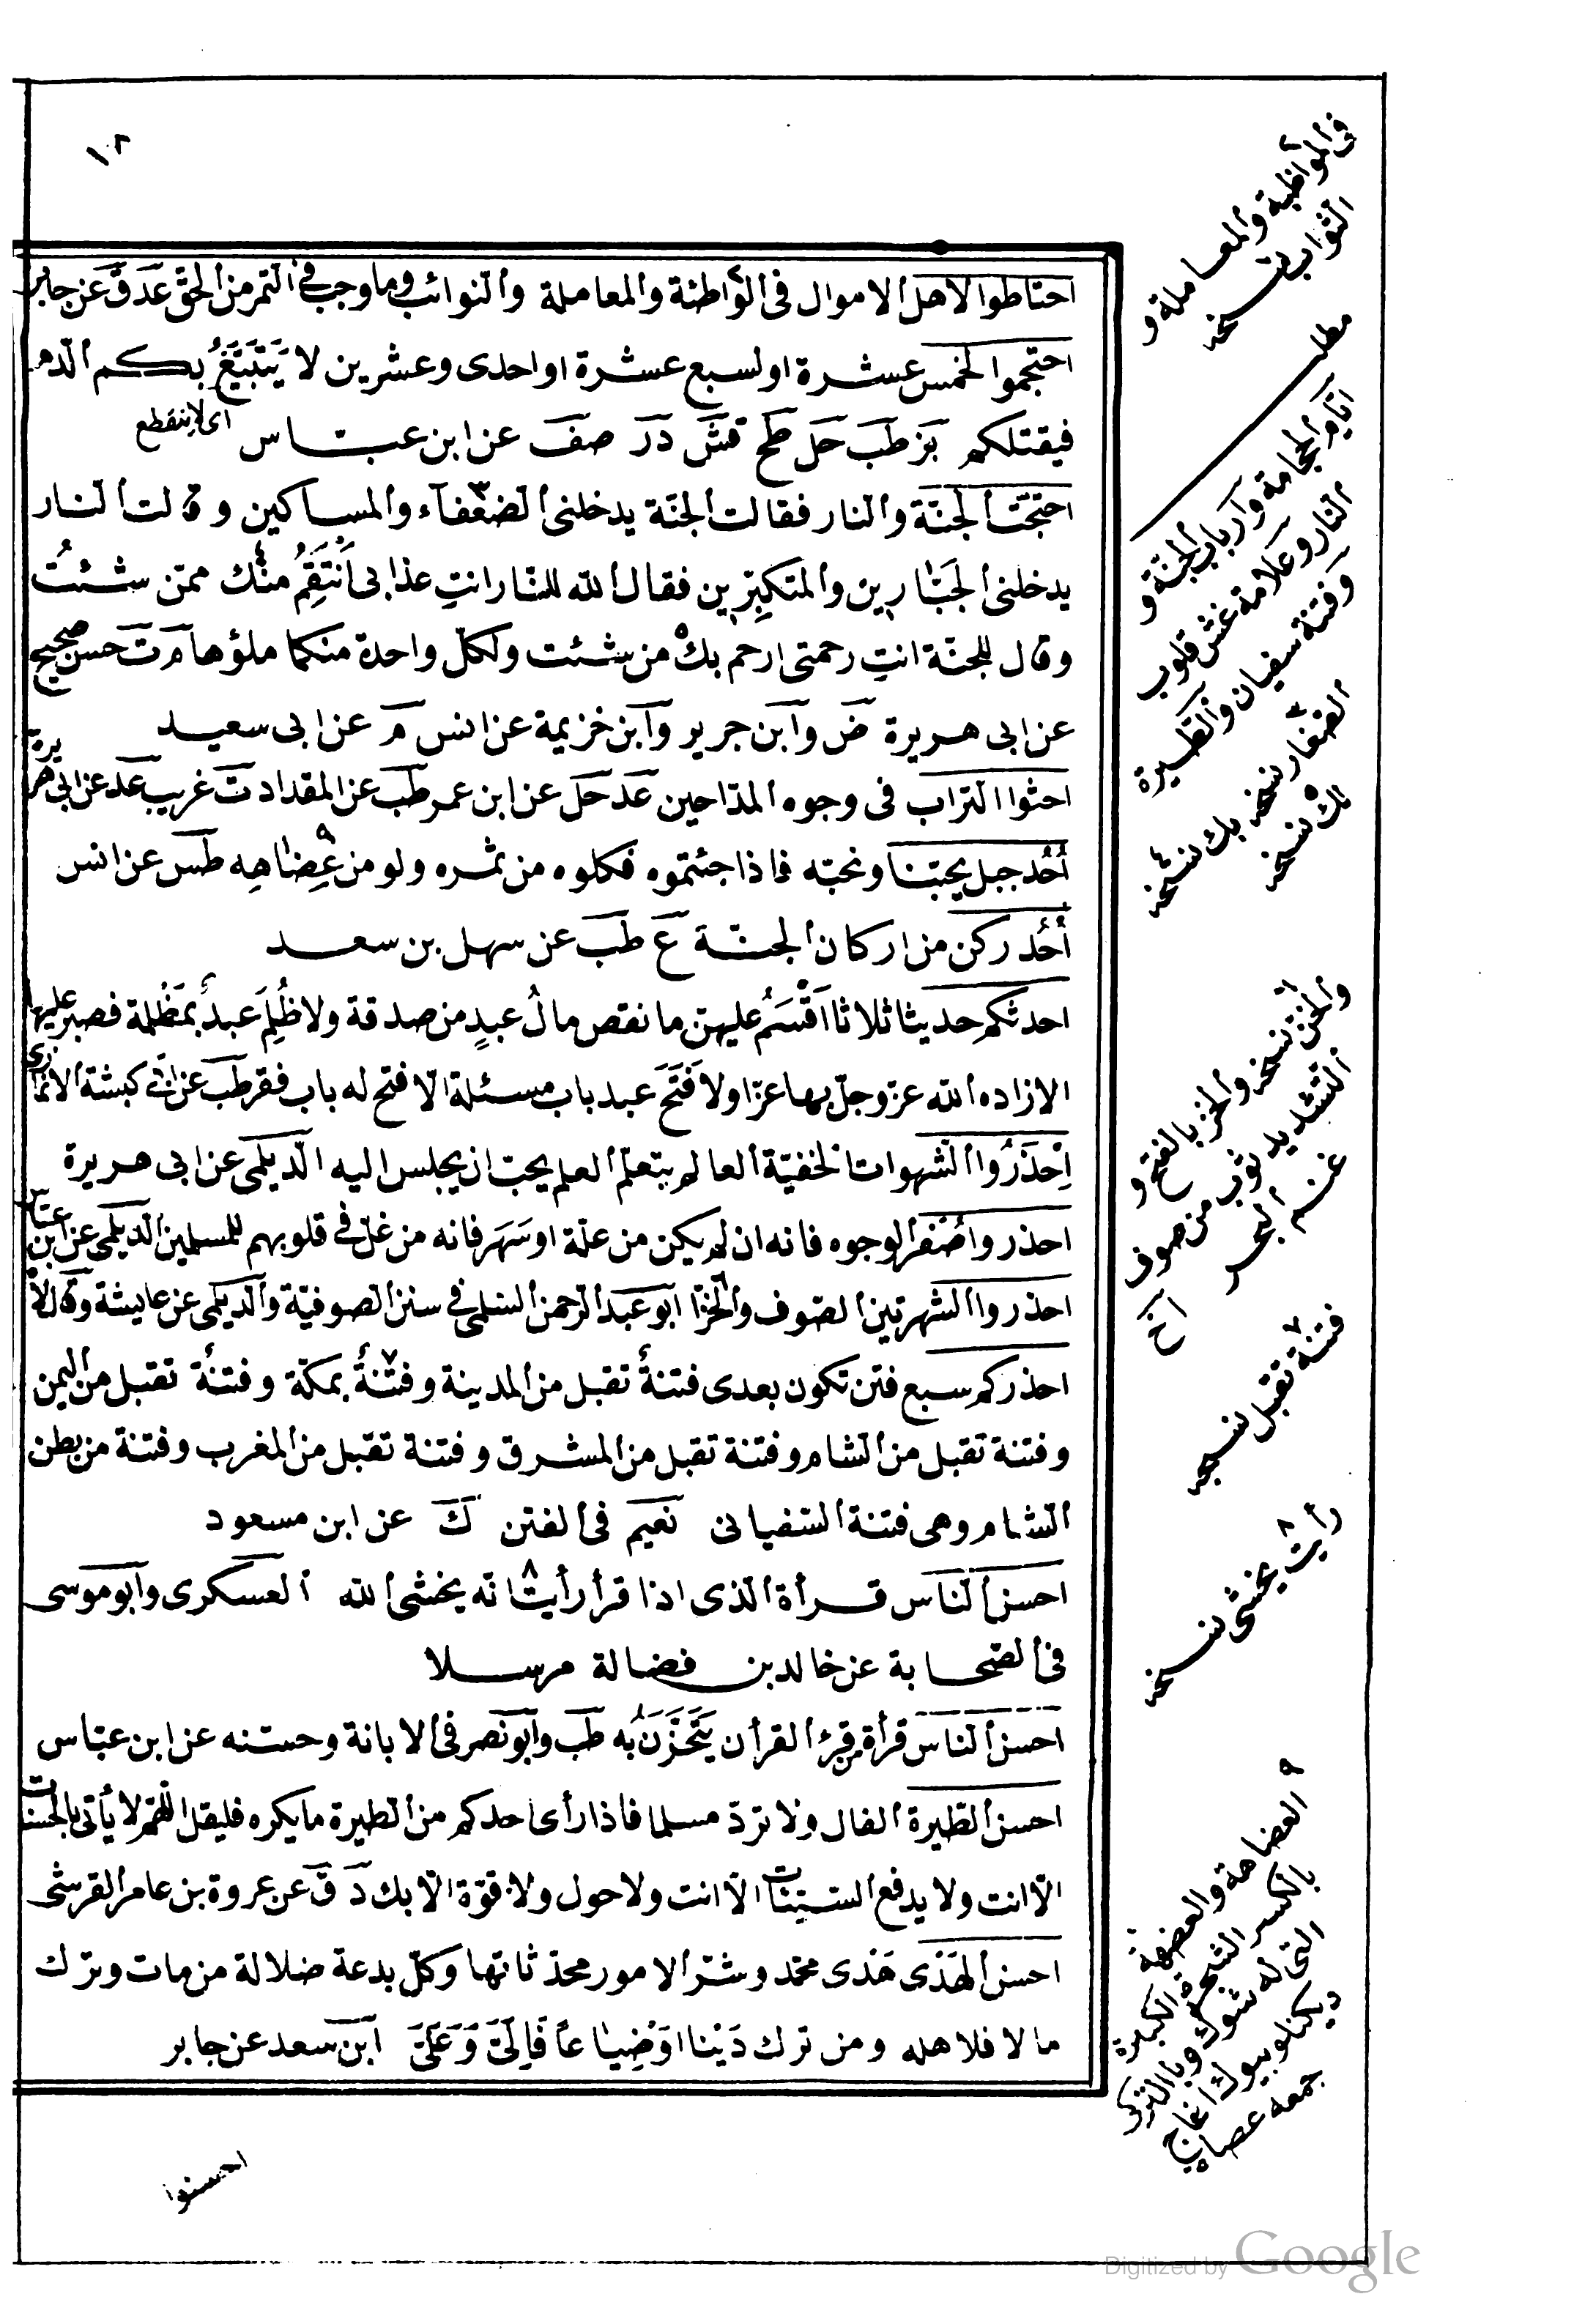 ١٨
احتاطوا لاهل الاموال فى الواطئة والمعاملة والنوائب وما وجب فى التمر من الحق عد ق عن جابر
احتجموا لخمس عشرة او لسبع عشرة او احدى وعشرين لا يَتَبَيَّغُ بكم الدم
فيقتلكم بز طب حل طح قش در صف عن ابن عباس اى لا ينقطع
احتجّت الجنّة والنار فقالت الجنّة يدخلنى الضعفآء والمساكين وقالت النار
يدخلنى الجبّارين والمتكبّرين فقال الله للنّار انتِ عذابى اَنْتَقِمُ منك ممّن شئتُ
وقال للجنّة انتِ رحمتى ارحم بك من شئت ولكلّ واحدة منكما ملؤها م ت حسن صحيح
عن ابى هريرة ض وابن جرير وابن خزيمة عن انس م عن ابى سعيد
احثوا التراب فى وجوه المدّاحين عد حل عن ابن عمر طب عن المقداد ت غريب عد عن ابى هريرة
اُحُد جبل يحبّنا ونحبّه فاذا جئتموه فكلوه من ثمره ولو من عِضاهِه طس عن انس
اُحُد ركن من اركان الجنّة ع طب عن سهل بن سعد
احدثكم حديثا ثلاثا اَقْسَمُ عليهنّ ما نقص مالُ عبدٍ من صدقة ولا ظُلِمَ عبدٌ بمَظْلمة فصبر عليها
الا زاده الله عزوجلّ بها عزّا ولا فَتَحَ عبد باب مسئلة الّا فتح له باب فقر طب عن ابى كبشة الانمارى
اِحْذَرُوا الشهوات الخفيّة العالم يتعلّم العلم يحبّ ان يجلس اليه الديلمى عن ابى هريرة
احذروا صُفْر الوجوه فانه ان لم يكن من علّة او سَهَر فانه من غلّ فى قلوبهم للمسلمين الديلمى عن ابن عباس
احذروا الشهرتين الصوف والخزّ ابو عبد الرحمن السلمى فى سنن الصوفيّة والديلمى عن عايشة
احذركم سبع فتن تكون بعدى فتنةً تقبل من المدينة وفتنةً بمكّة وفتنةً تقبل من اليمن
وفتنة تقبل من الشام وفتنة تقبل من المشرق وفتنة تقبل من المغرب وفتنة من بطن
الشام وهى فتنة السّفيانى نعيم فى الفتن ك عن ابن مسعود
احسن الناس قرأة الذى اذا قرأ رأيت انّه يخشى الله العسكرى وابو موسى
فى الصحابة عن خالد بن فضالة مرسلا
احسن الناس قرأة من قرء القرأن يَتَحَزَّنَ به طب وابو نصر فى الابانة وحسّنه عن ابن عبّاس
احسن الطّيرة الفال ولا تردّ مسلما فاذا رأى احدكم من الطيرة ما يكره فليقل اللهم لا يأتى بالحسنات
الّا انت ولا يدفع السّيّئات الّا انت ولا حول ولا قوّة الّا بك د ق عن عروة بن عامر القرشى
احسن الهَدْى هَدْى محمّد وشرّ الامور محدثاتها وكلّ بدعة ضلالة من مات وترك
مالا فلاهله ومن ترك دَيْنا او ضِياعاً فَاِلَىَّ وَعَلَىَّ ابن سعد عن جابر
احسنوا
فى المواظبة والمعاملة و
النواب نسخه
مطلب
ايام الحجامة وارباب الجنة و
النار وعلامة غش قلوب
وفتنة سفيان والطيرة
٣ الضغار نسخه بك نسخه ٤
٥ بك نسخه
٦ والخز نسخه والخز بالفتح و
التشديد ثوب من صوف
غنم البحر
اخ
٧ فتنة تقبل نسخه
٨ رأيت يخشى نسخه
٩ العضاهة والعضهة
بالكسر الشجرة الكبيرة
التى له شوك وبالتركى
ديكنلو بيوك اغاج
جمعه عضاه
Digitized by Google